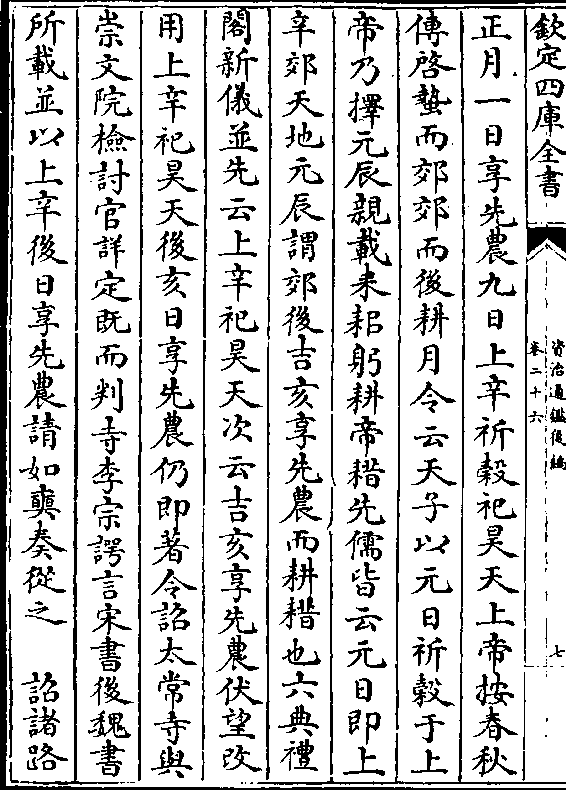 欽定四庫全書
資治通鑑後編
卷二十六
七
正月一日享先農九日上辛祈穀祀昊天上帝按春秋
傳啓蟄而郊郊而後耕月令云天子以元日祈穀于上
帝乃擇元辰親載耒耜躬耕帝耤先儒皆云元日即上
辛郊天地元辰謂郊後吉亥享先農而耕耤也六典禮
閣新儀並先云上辛祀昊天次云吉亥享先農伏望改
用上辛祀昊天後亥日享先農仍即著令詔太常寺與
崇文院檢討官詳定既而判寺李宗諤言宋書後魏書
所載並以上辛後日享先農請如奭奏從之　詔諸路